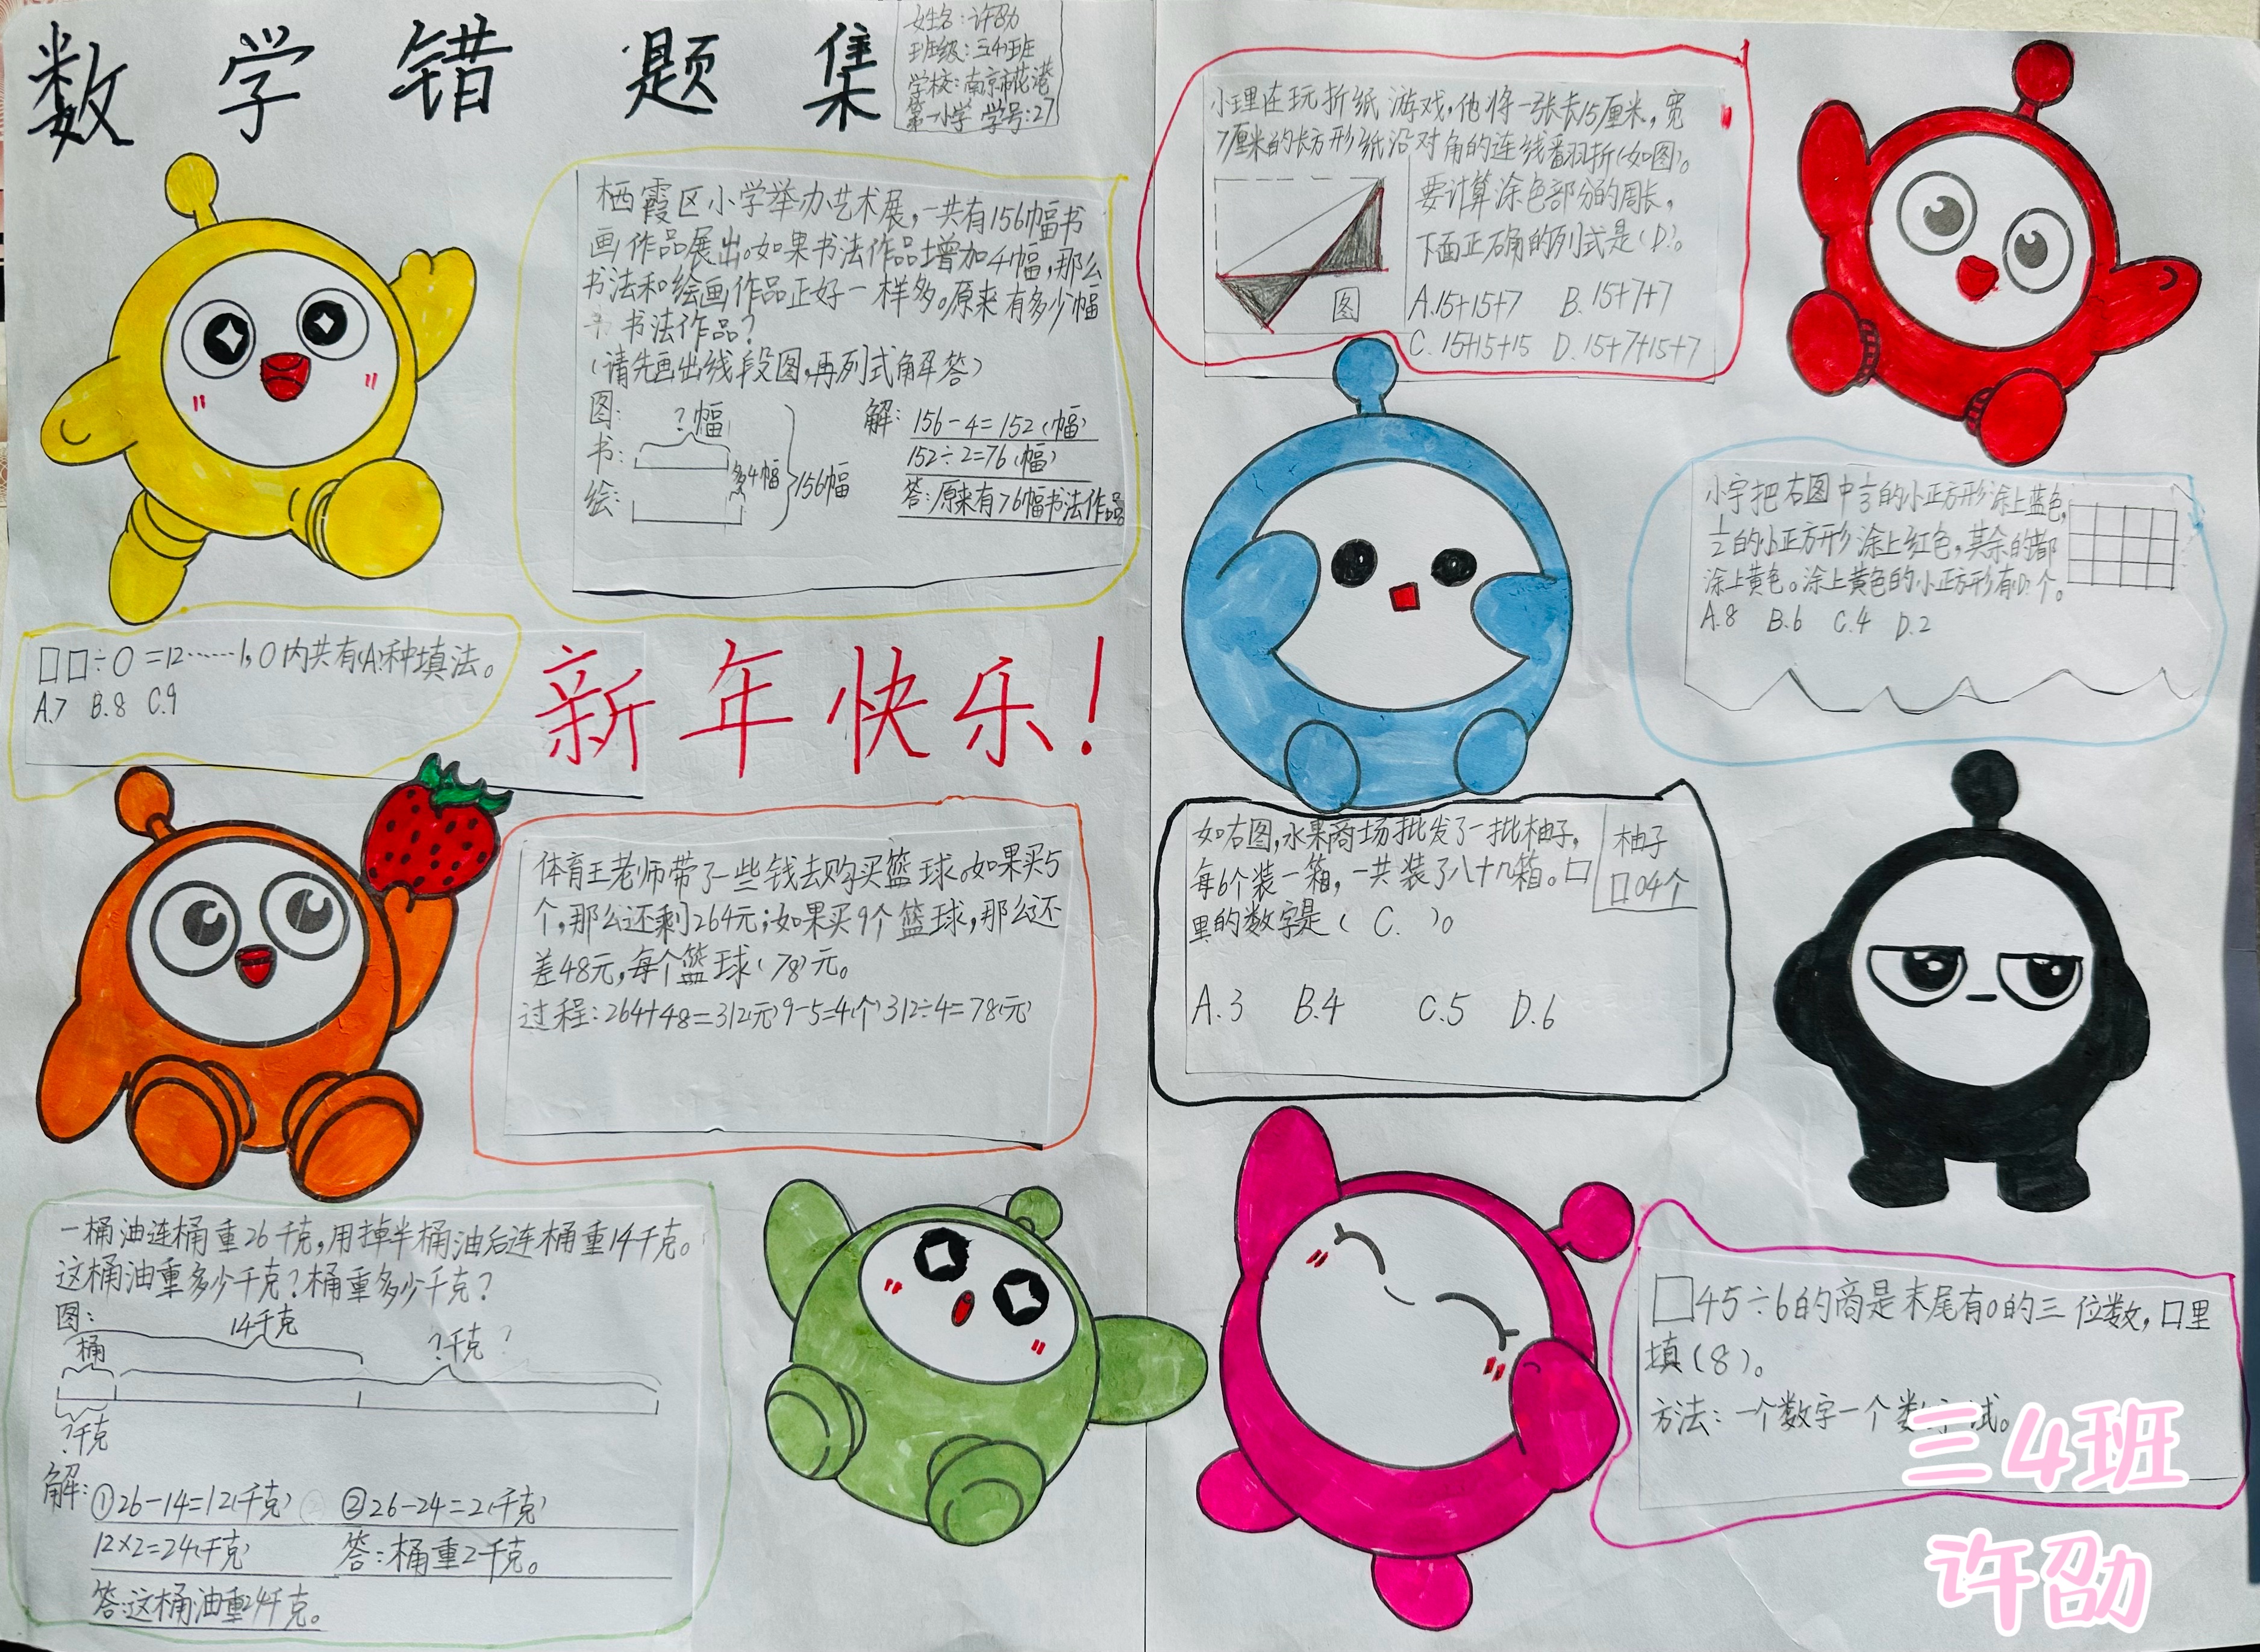 数学错题集
姓名：许劭
班级：三4班
学校：南京市花港
第一小学 学号：27
栖霞区小学举办艺术展，一共有156幅书
画作品展出。如果书法作品增加4幅，那么
书法和绘画作品正好一样多。原来有多少幅
书法作品？
（请先画出线段图，再列式解答）
图：
?幅
书：
多4幅
156幅
绘：
解：156-4=152（幅）
152÷2=76（幅）
答：原来有76幅书法作品
□□÷○=12……1，○内共有（A）种填法。
A.7 B.8 C.9
新年快乐！
体育王老师带了一些钱去购买篮球。如果买5
个，那么还剩264元；如果买9个篮球，那么还
差48元，每个篮球（78）元。
过程：264+48=312（元）9-5=4（个）312÷4=78（元）
一桶油连桶重26千克，用掉半桶油后连桶重14千克。
这桶油重多少千克？桶重多少千克？
图：
14千克
桶
?千克?
?千克
解：①26-14=12（千克） ②26-24=2（千克）
12×2=24（千克） 答：桶重2千克。
答：这桶油重24千克。
小理在玩折纸游戏，他将一张长15厘米，宽
7厘米的长方形纸沿对角的连线翻折（如图）。
要计算涂色部分的周长，
下面正确的列式是（D）。
图
A.15+15+7 B.15+7+7
C.15+15+15 D.15+7+15+7
小宇把右图中1/3的小正方形涂上蓝色，
1/2的小正方形涂上红色，其余的都
涂上黄色。涂上黄色的小正方形有（D）个。
A.8 B.6 C.4 D.2
如右图，水果商场批发了一批柚子，
每6个装一箱，一共装了八十几箱。□
里的数字是（ C. ）。
柚子
□04个
A.3 B.4 C.5 D.6
□45÷6的商是末尾有0的三位数，□里
填（8）。
方法：一个数字一个数字试。
三4班
许劭